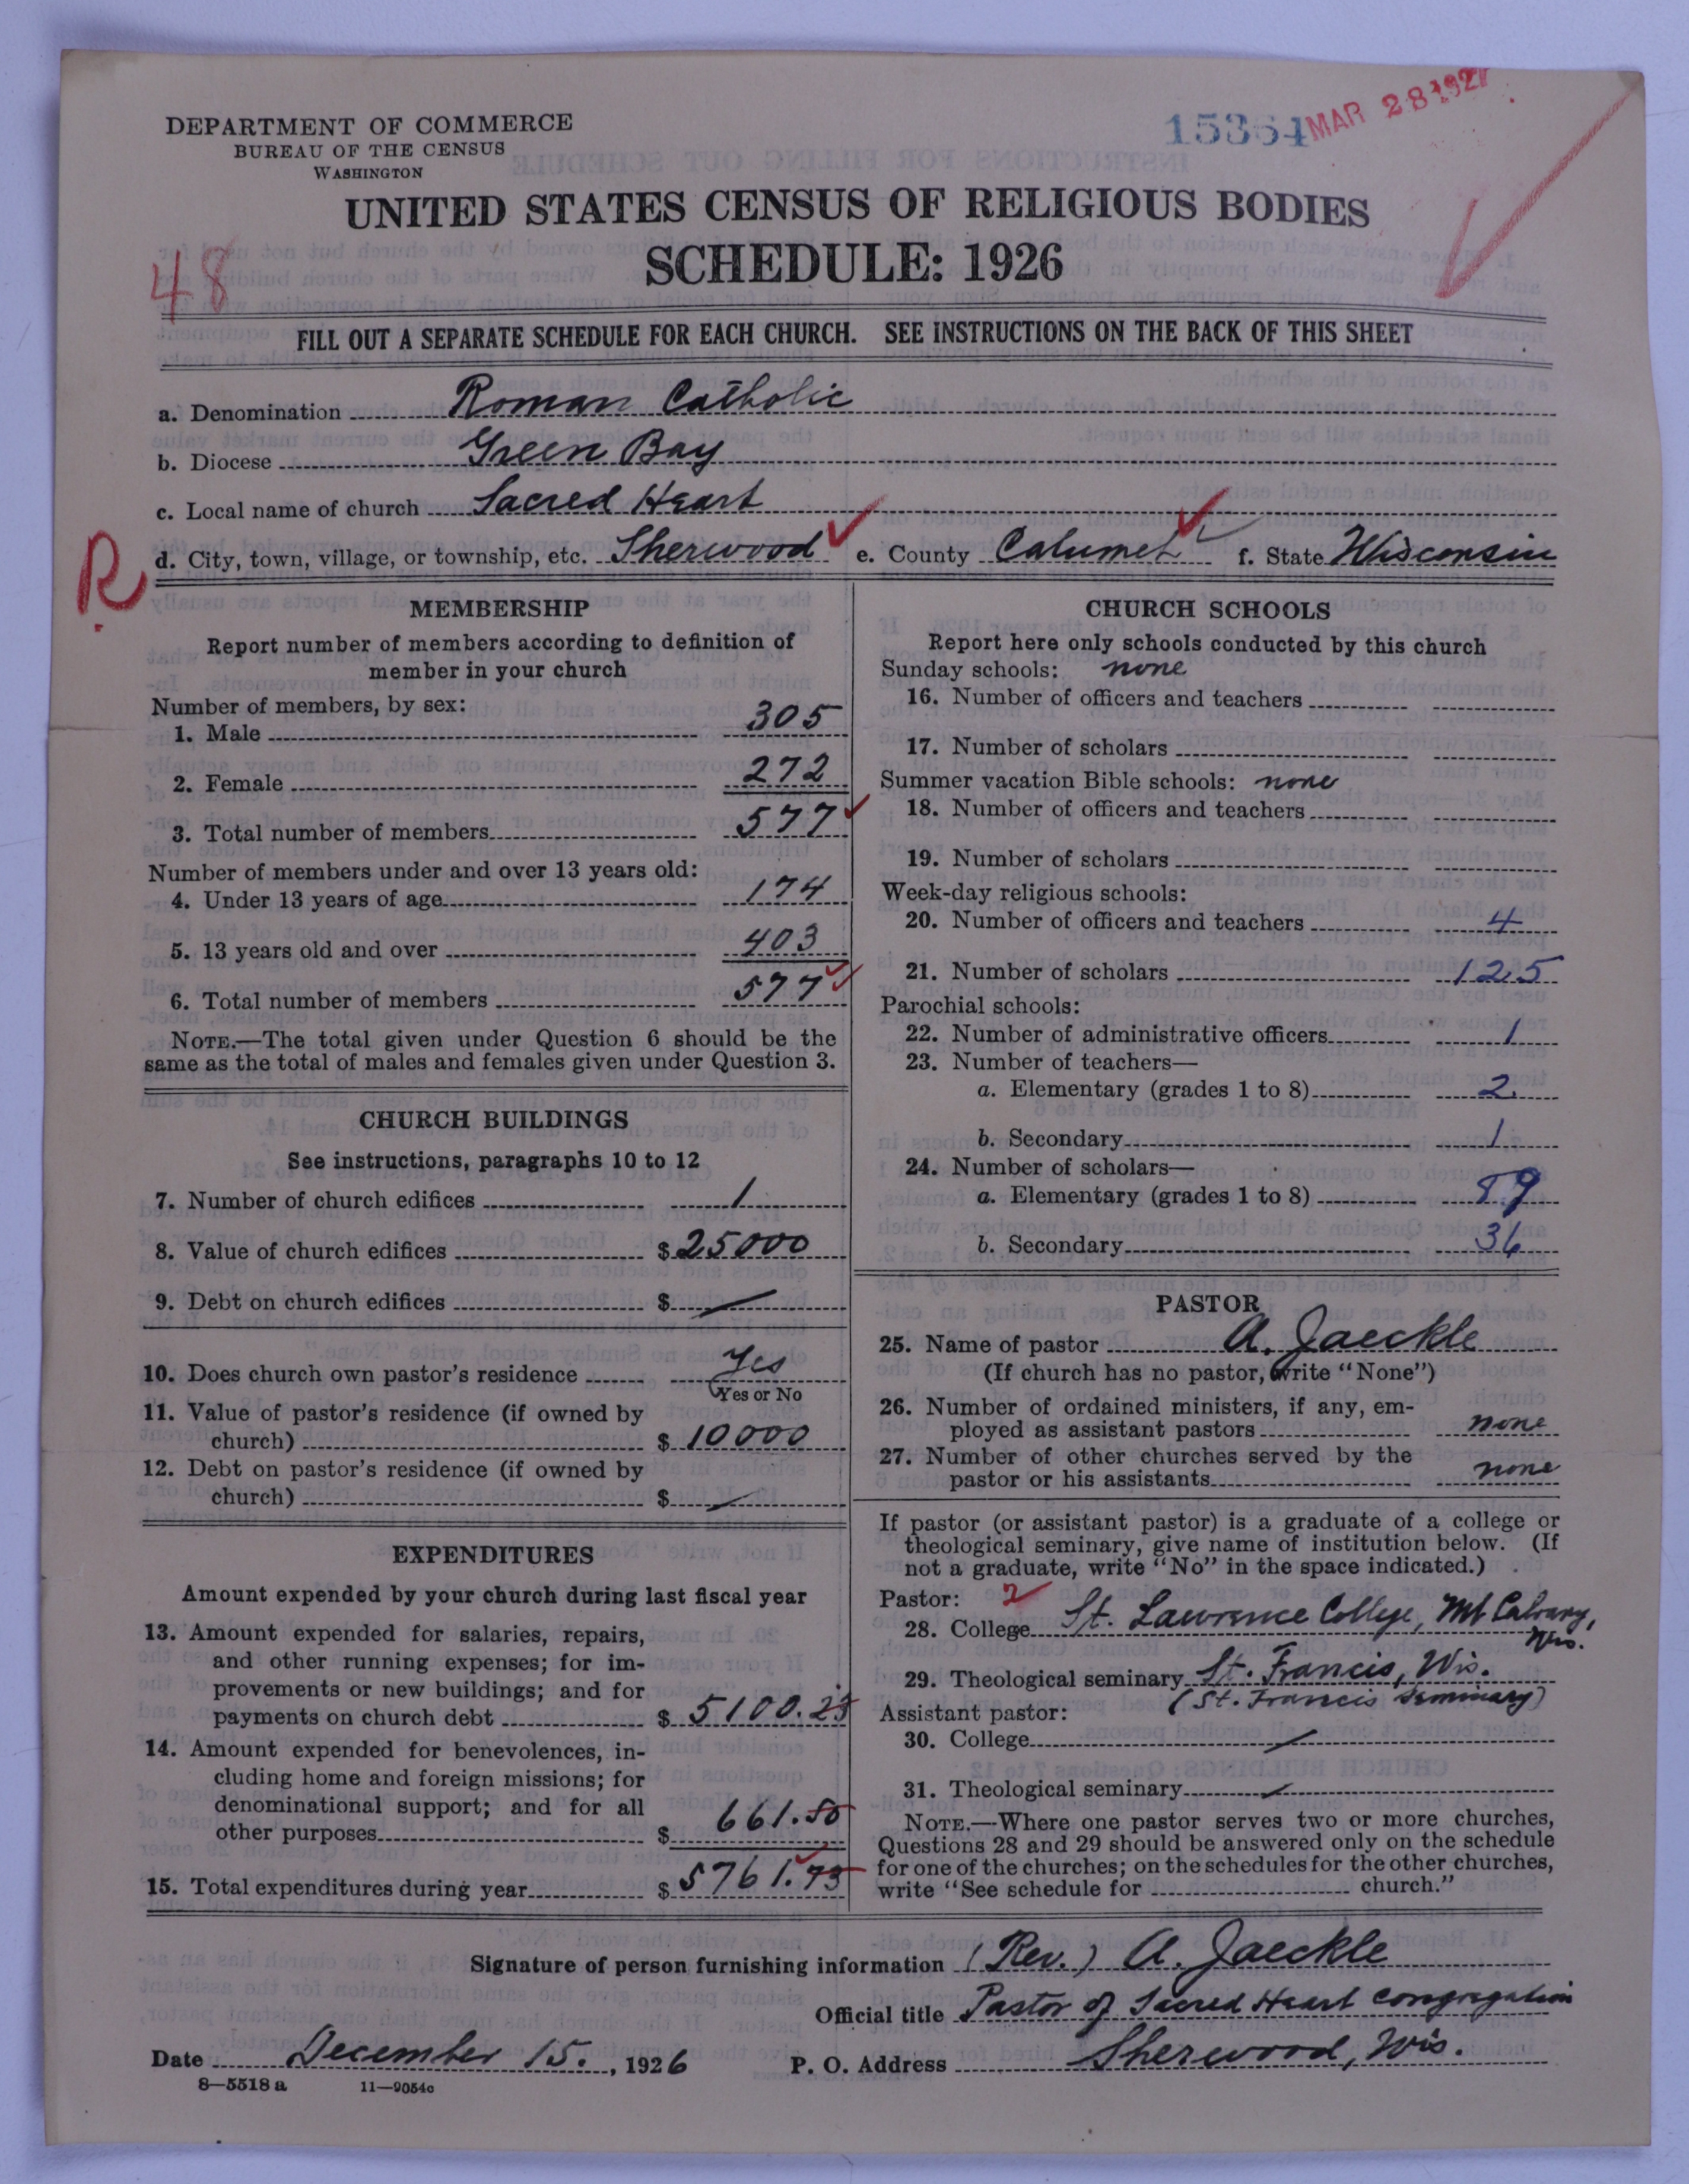 DEPARTMENT OF COMMERCE
BUREAU OF THE CENSUS
WASHINGTON
15364 MAR 28 1927
UNITED STATES CENSUS OF RELIGIOUS BODIES
SCHEDULE: 1926
48
FILL OUT A SEPARATE SCHEDULE FOR EACH CHURCH. SEE INSTRUCTIONS ON THE BACK OF THIS SHEET
a. Denomination Roman Catholic
b. Diocese Green Bay
c. Local name of church Sacred Heart
R
d. City, town, village, or township, etc. Sherwood e. County Calumet f. State Wisconsin
MEMBERSHIP
Report number of members according to definition of
member in your church
Number of members, by sex:
1. Male 305
2. Female 272
3. Total number of members 577
Number of members under and over 13 years old:
4. Under 13 years of age 174
5. 13 years old and over 403
6. Total number of members 577
NOTE.—The total given under Question 6 should be the
same as the total of males and females given under Question 3.
CHURCH BUILDINGS
See instructions, paragraphs 10 to 12
7. Number of church edifices 1
8. Value of church edifices $ 25000
9. Debt on church edifices $ —
10. Does church own pastor's residence Yes
Yes or No
11. Value of pastor's residence (if owned by
church) $ 10000
12. Debt on pastor's residence (if owned by
church) $ —
EXPENDITURES
Amount expended by your church during last fiscal year
13. Amount expended for salaries, repairs,
and other running expenses; for im-
provements or new buildings; and for
payments on church debt $ 5100.23
14. Amount expended for benevolences, in-
cluding home and foreign missions; for
denominational support; and for all
other purposes $ 661.50
15. Total expenditures during year $ 5761.73
CHURCH SCHOOLS
Report here only schools conducted by this church
Sunday schools: none
16. Number of officers and teachers
17. Number of scholars
Summer vacation Bible schools: none
18. Number of officers and teachers
19. Number of scholars
Week-day religious schools:
20. Number of officers and teachers 4
21. Number of scholars 125
Parochial schools:
22. Number of administrative officers 1
23. Number of teachers—
a. Elementary (grades 1 to 8) 2
b. Secondary 1
24. Number of scholars—
a. Elementary (grades 1 to 8) 89
b. Secondary 36
PASTOR
25. Name of pastor A. Jaeckle
(If church has no pastor, write "None")
26. Number of ordained ministers, if any, em-
ployed as assistant pastors none
27. Number of other churches served by the
pastor or his assistants none
If pastor (or assistant pastor) is a graduate of a college or
theological seminary, give name of institution below. (If
not a graduate, write "No" in the space indicated.)
Pastor: 2
28. College St. Lawrence College, Mt Calvary,
Wis.
29. Theological seminary St. Francis, Wis.
(St. Francis Seminary)
Assistant pastor:
30. College —
31. Theological seminary —
NOTE.—Where one pastor serves two or more churches,
Questions 28 and 29 should be answered only on the schedule
for one of the churches; on the schedules for the other churches,
write "See schedule for church."
Signature of person furnishing information (Rev.) A. Jaeckle
Official title Pastor of Sacred Heart Congregation
Date December 15., 1926 P. O. Address Sherwood, Wis.
8—5518 a 11—9054c